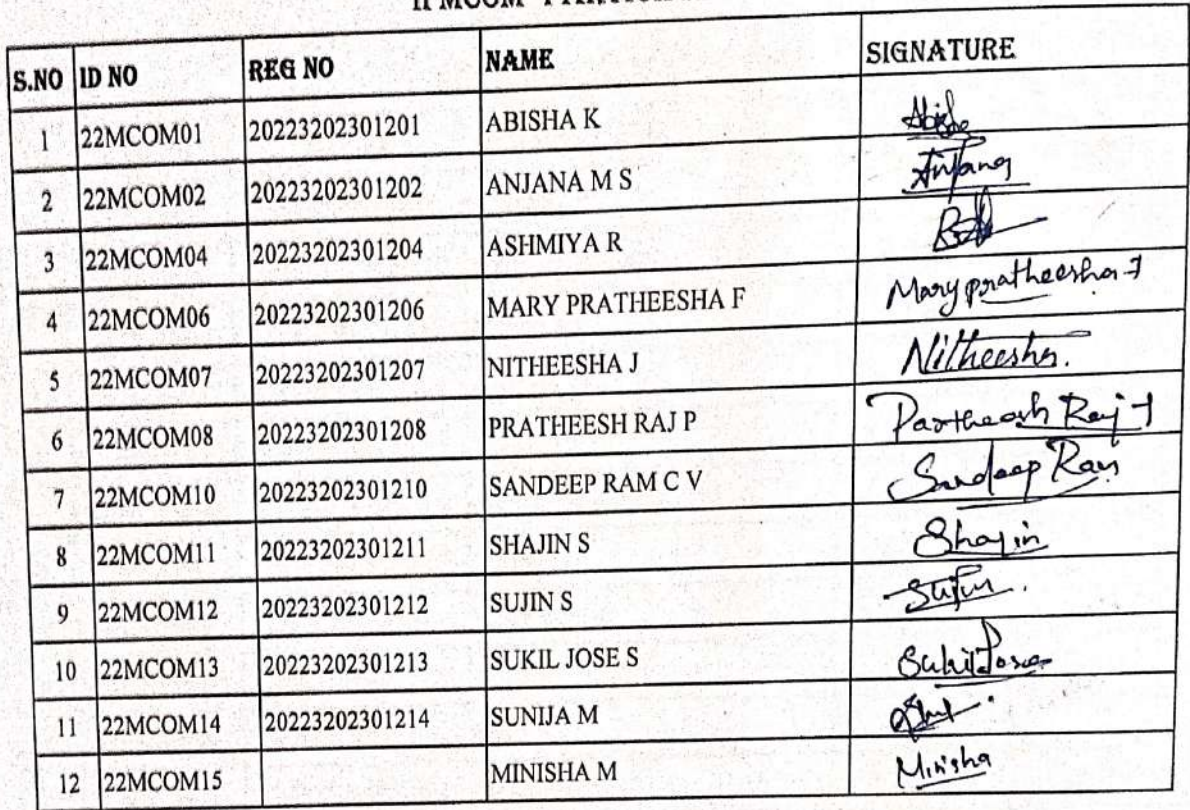 II MCOM
S.NO ID NO REG NO NAME SIGNATURE
1 22MCOM01 20223202301201 ABISHA K Abisha
2 22MCOM02 20223202301202 ANJANA M S Anjana
3 22MCOM04 20223202301204 ASHMIYA R
4 22MCOM06 20223202301206 MARY PRATHEESHA F Mary pratheesha F
5 22MCOM07 20223202301207 NITHEESHA J Nitheesha.
6 22MCOM08 20223202301208 PRATHEESH RAJ P Partheesh Raj
7 22MCOM10 20223202301210 SANDEEP RAM C V Sandeep Ram
8 22MCOM11 20223202301211 SHAJIN S Shajin
9 22MCOM12 20223202301212 SUJIN S Sujin.
10 22MCOM13 20223202301213 SUKIL JOSE S Sukil Jose
11 22MCOM14 20223202301214 SUNIJA M
12 22MCOM15 MINISHA M Minisha